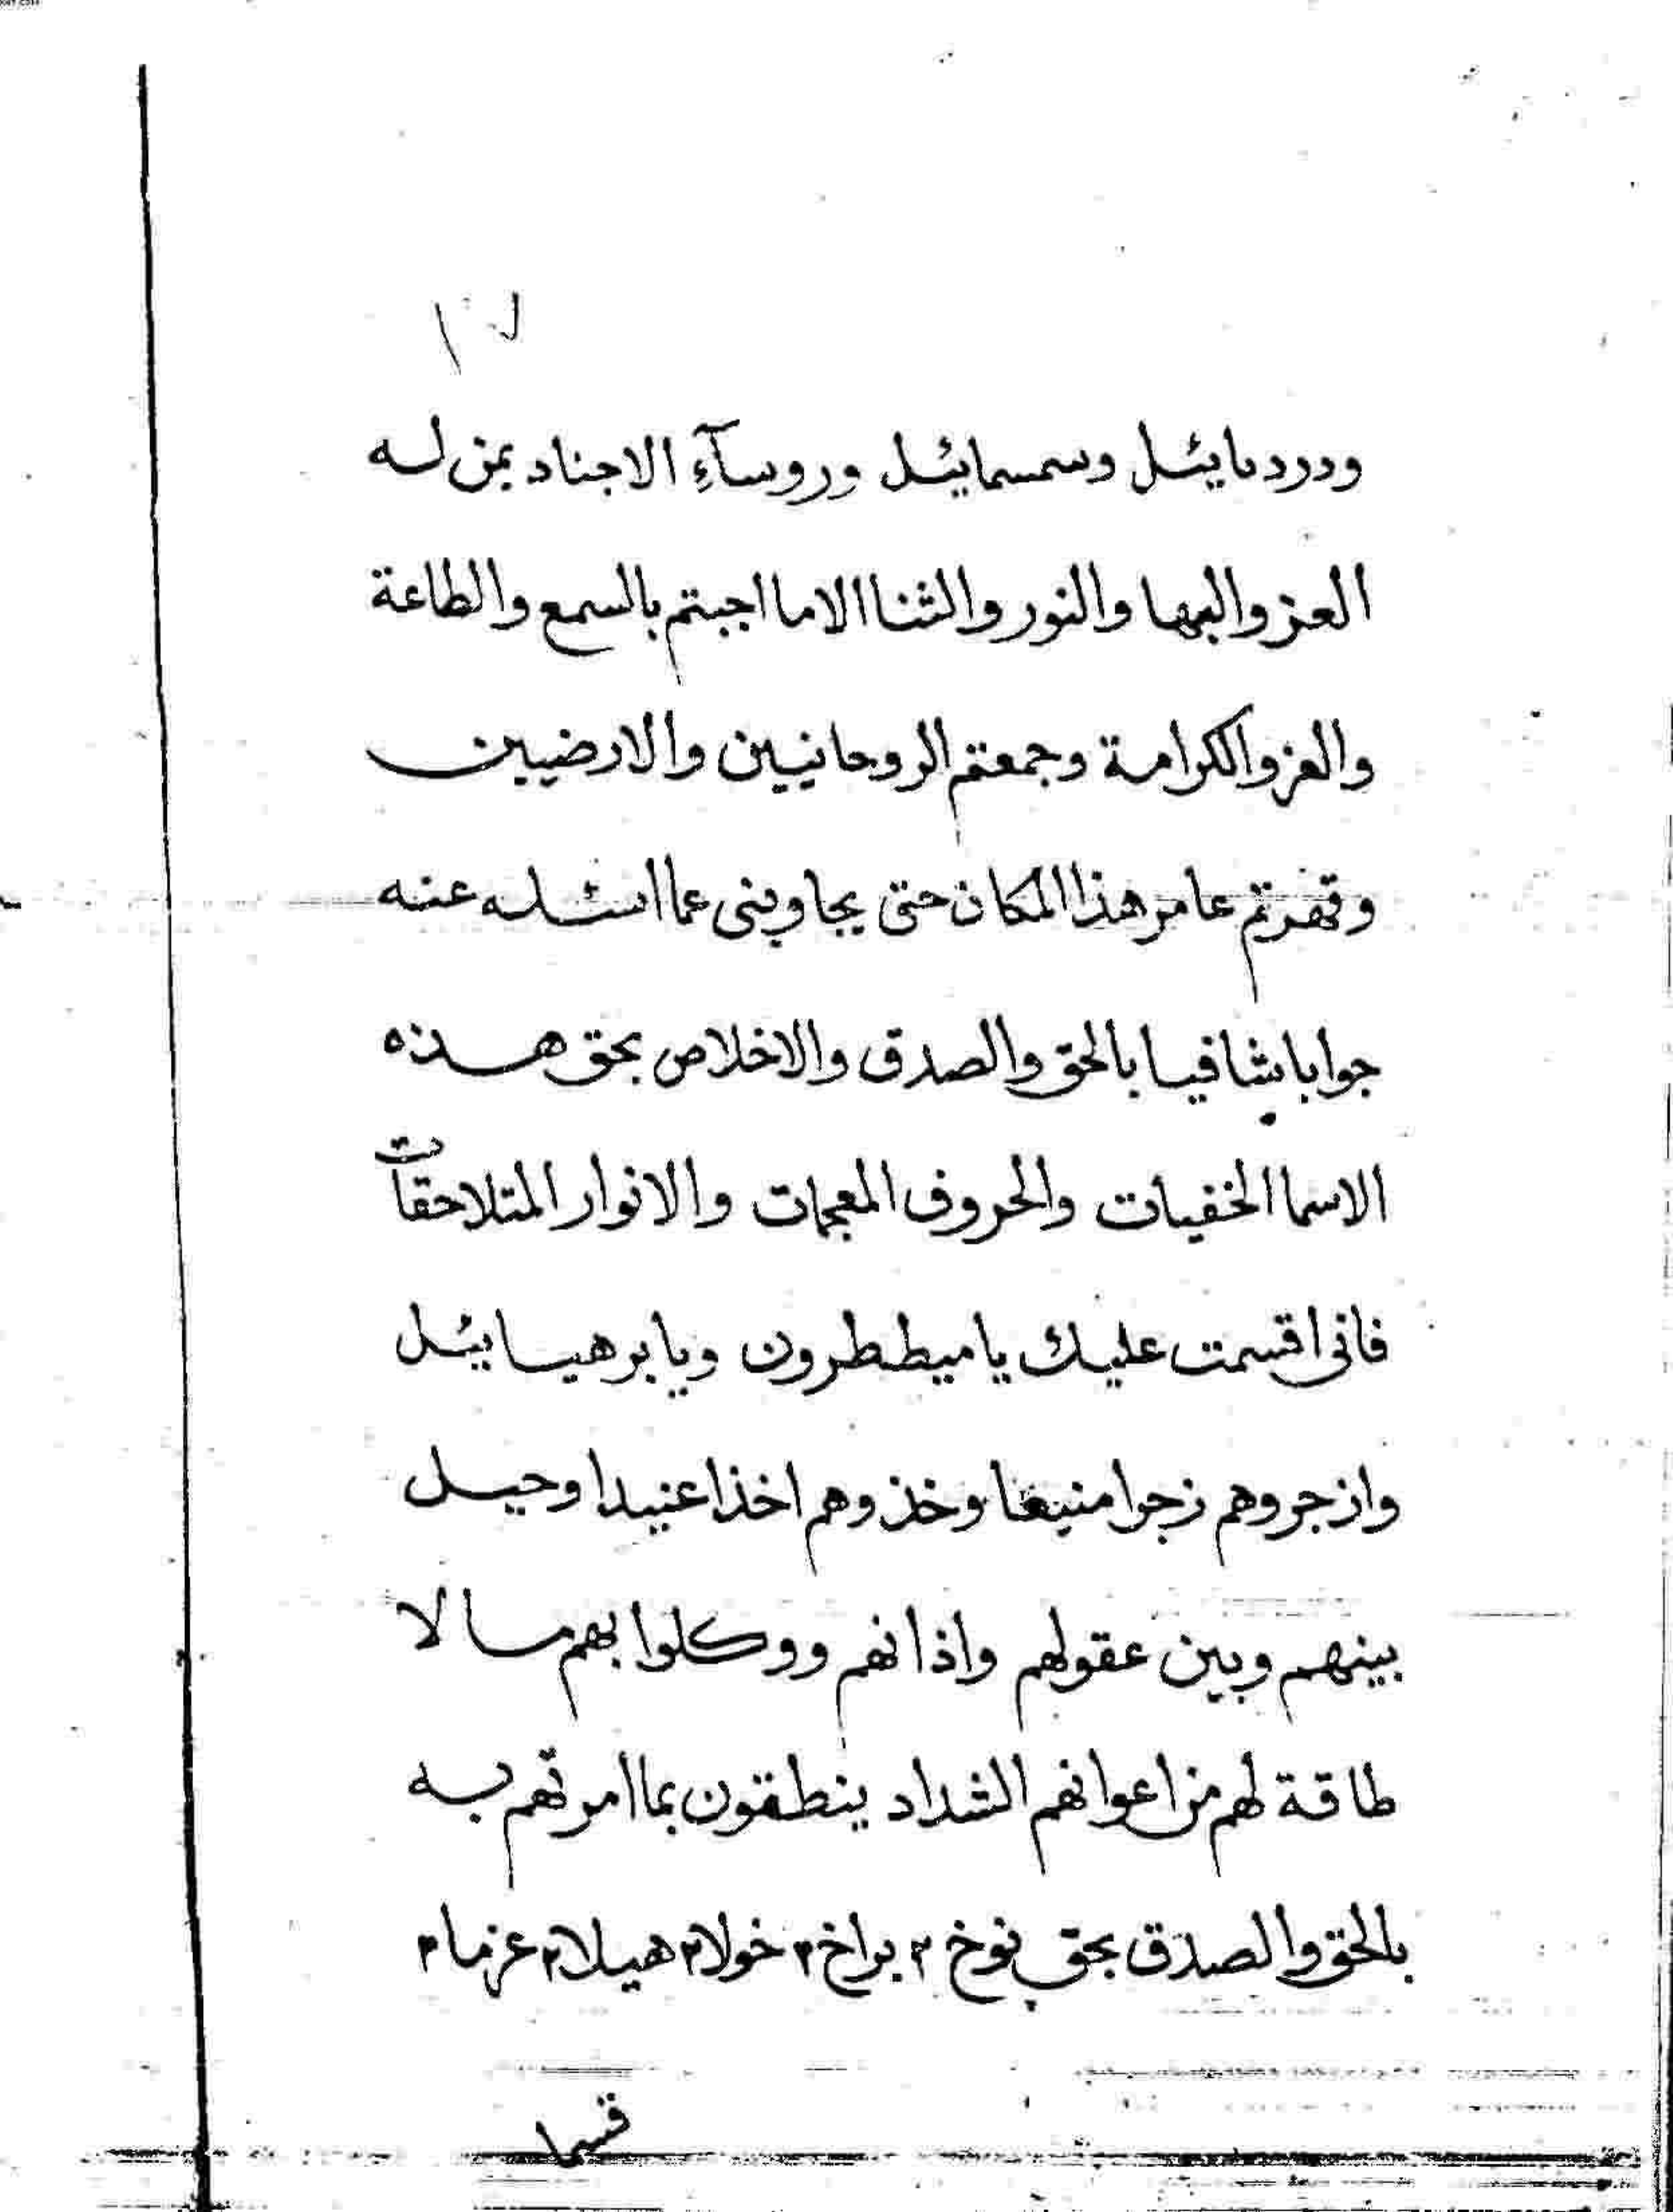 ودردىايئل وسمسمايئل وروسآءِ الاجناد بمن له
العز والبها والنور والثنا الا ما اجبتم بالسمع والطاعة
والعز والكرامة وجمعتم الروحانيين والارضيين
وقهرتم عامر هذا المكان حتى يجاوبنى عما اسئله عنه
جوابا شافيا بالحق والصدق والاخلاص بحق هذه
الاسما الخفيات والحروف المعجمات والانوار المتلاحقات
فانى اقسمت عليك يا ميططرون ويا برهيايئل
وازجروهم زجرا منيعا وخذوهم اخذا عنيدا وحيل
بينهم وبين عقولهم واذانهم ووكلوا بهم ما لا
طاقة لهم من اعوانهم الشداد ينطقون بما امرتهم به
بالحق والصدق بحق نوخ ٢ براخ ٢ خولا ٢ هيلا ٢ عزما ٢
قسما